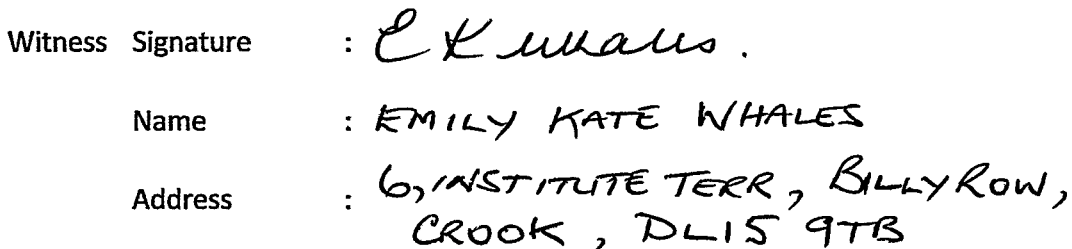 Witness Signature : E K Whales.
Name : EMILY KATE WHALES
Address : 6, INSTITUTE TERR, BILLY ROW,
CROOK, DL15 9TB